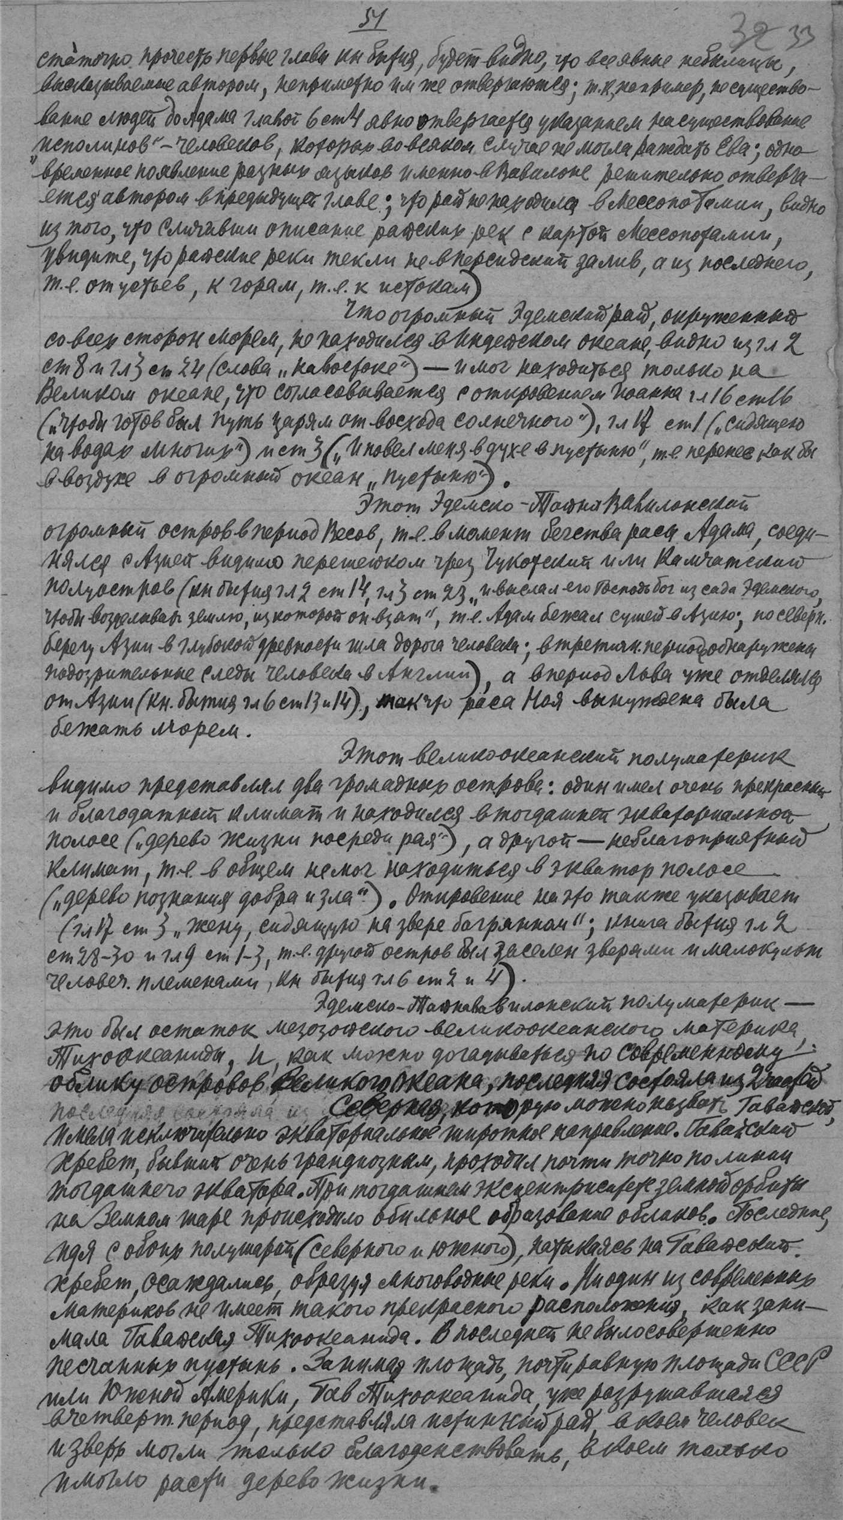 51
32 33
статочно прочесть первые главы кн бытия, будет видно, что все явные небылицы,
высказываемые автором, неприметно им же отвергаются; т.к, например, несущество-
вание людей до Адама главой 6 ст 4 явно отвергается указанием на существование
„исполинов“ – человеков, которых во всяком случае не могла рождать Ева; одно-
временное появление разных языков именно в Вавилоне решительно отверга-
ется автором в предыдущей главе; что рай не находился в Мессопотамии, видно
из того, что сличивши описание райских рек с картой Мессопотамии,
увидите, что райские реки текли не в персидский залив, а из последнего,
т.е. от устьев, к горам, т.е. к истокам)
Что огромный Эдемский рай, окруженный
со всех сторон морем, не находился в Индейском океане, видно из гл 2
ст 8 и гл 3 ст 24 (слова „на востоке“) — и мог находиться только на
Великом океане, что согласовывается с откровением Иоанна гл 16 ст 16
(„чтобы готов был путь царям от восхода солнечного“), гл 17 ст 1 („сидящею
на водах многих“) и ст 3 („И повел меня в духе в пустыню“, т.е перенес как бы
в воздухе в огромный океан „пустыню“).
Этот Эдемско-Тайна Вавилонский
огромный остров в период Весов, т.е. в момент бегства расы Адама, соеди-
нялся с Азией видимо перешейком чрез Чукотский или Камчатский
полуостров (кн бытия гл 2 ст 14, гл 3 ст 23 „и выслал его Господь бог из сада Эдемского,
чтобы возделывать землю, из которой он взят“, т.е. Адам бежал сушей в Азию; по северн.
берегу Азии в глубокой древности шла дорога человека; в третичн. период обнаружены
подозрительные следы человека в Англии), а в период Льва уже отделялся
от Азии (кн. бытия гл 6 ст 13 и 14), так что раса Ноя вынуждена была
бежать морем.
Этот великоокеанский полуматерик
видимо представлял два громадных острова: один имел очень прекрасный
и благодатный климат и находился в тогдашней экваториальной
полосе („дерево жизни посреди рая“), а другой — неблагоприятный
климат, т.е. в общем не мог находиться в экватор полосе
(„дерево познания добра и зла“). Откровение на это также указывает
(гл 17 ст 3 „жену, сидящую на звере багряном“; книга бытия гл 2
ст 28-30 и гл 9 ст 1-3, т.е. другой остров был заселен зверями и малокульт
человеч. племенами, кн бытия гл 6 ст 2 и 4).
Эдемско-Тайнававилонский полуматерик —
это был остаток мезозойского великоокеанского материка,
Тихоокеаниды, И, как можно догадываться по современному
облику островов Великого Океана, последняя состояла из 2 частей
последняя состояла из Северная, которую можно назвать Гавайской,
имела исключительно экваториальное широтное направление. Гавайский
хребет, бывший очень грандиозным, проходил почти точно по линии
тогдашнего экватора. При тогдашнем эксцентриситете земной орбиты
на Земном шаре происходило обильное образование облаков. Последние,
идя с обоих полушарий (северного и южного), натыкаясь на Гавайский
хребет, осаждались, образуя многоводные реки. Ни один из современных
материков не имеет такого прекрасного расположения, как зани-
мала Гавайская Тихоокеанида. В последней не было совершенно
песчанных пустынь. Занимая площадь, почти равную площади СССР
или Южной Америки, Гав Тихоокеанида, уже разрушавшаяся
в четверт. период, представляла истинный рай, в коем человек
и зверь могли только благоденствовать, в коем только
и могло расти дерево жизни.